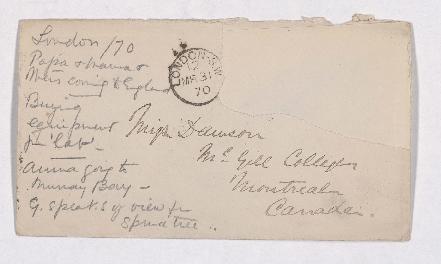 London /70
Papa & Mama &
coming to England
Buying
equipment
for Lab -
Anna going to
Murray Bay -
G. speaks of view fr
Spruce tree ..
LONDON S.W
MR 31
70
Miss Dawson
McGill College
Montreal
Canada.